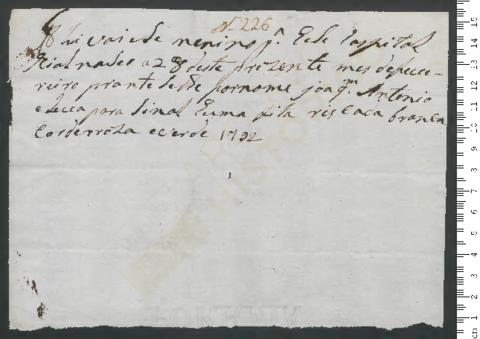 Nº 226
Ahi vai ede menino pª Ede ospital
Rial nadeo a 28 deste prezente mes de fuce
reiro prante sede por nome Joaqm Antonio
eleca para sinal huma fita riscaca branca
cordeiroza everde 1792